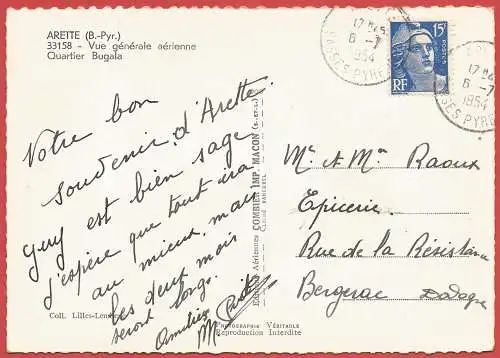 ARETTE (B.-Pyr.)
33158 - Vue générale aérienne
Quartier Bugala
Votre bon
souvenir d'Arette.
Guy est bien sage
j'espère que tout ira
au mieux, mais
les deux mois
seront longs.
Amitiés
M
Coll. Lilles-
Aériennes COMBIER IMP. MACON (S.-et-L.)
PHOTOGRAPHIE VÉRITABLE
Reproduction Interdite
17
6 -7
1954
BASSES PYR
15F
POSTES
RF
17
6 -7
1954
SES PYR
Mr & Mme Raoux
Epicerie.
Rue de la Résistance
Bergerac Dodogne